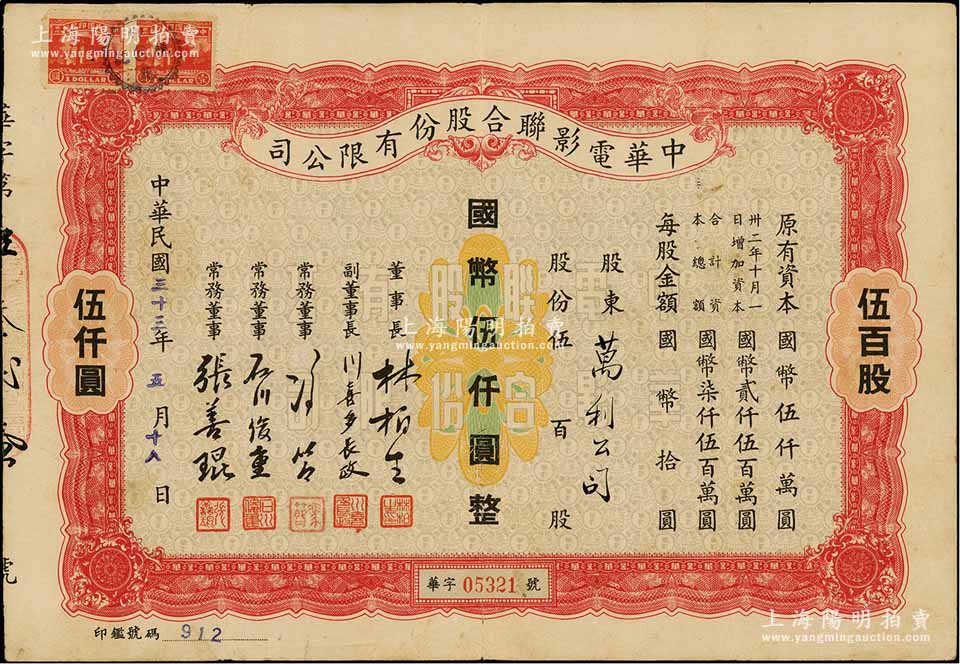 上海陽明拍賣
www.yangmingauction.com
中華電影聯合股份有限公司
伍百股
原有資本 國幣伍仟萬圓
卅二年十月一日增加資本 國幣貳仟伍百萬圓
合計資本總額 國幣柒仟伍百萬圓
每股金額 國幣拾圓
股東 萬利公司
股份伍百股
國幣伍仟圓整
董事長 林柏生
副董事長 川喜多長政
常務董事 馮節
常務董事 石川俊重
常務董事 張善琨
中華民國三十三年五月十八日
伍仟圓
華字 05321 號
印鑑號碼 912
華字第
號
DOLLAR
DOLLAR
上海陽明拍賣
www.yangmingauction.com
上海陽明拍賣
www.yangmingauction.com